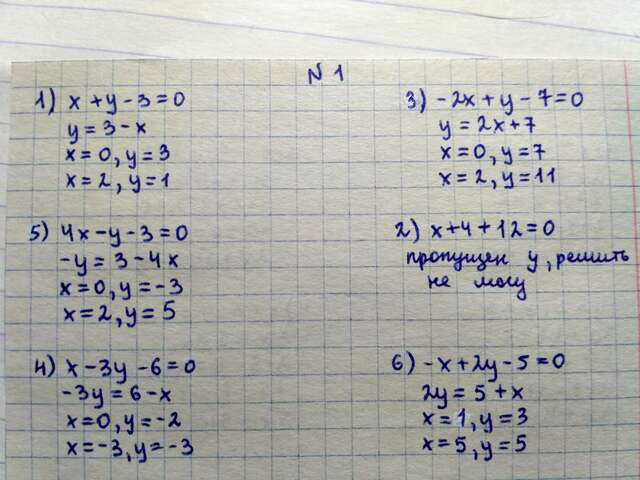 N 1
1) x + y - 3 = 0
y = 3 - x
x = 0, y = 3
x = 2, y = 1
3) - 2x + y - 7 = 0
y = 2x + 7
x = 0, y = 7
x = 2, y = 11
5) 4x - y - 3 = 0
-y = 3 - 4x
x = 0, y = -3
x = 2, y = 5
2) x + 4 + 12 = 0
пропущен y, решить
не могу
4) x - 3y - 6 = 0
-3y = 6 - x
x = 0, y = -2
x = -3, y = -3
6) -x + 2y - 5 = 0
2y = 5 + x
x = 1, y = 3
x = 5, y = 5